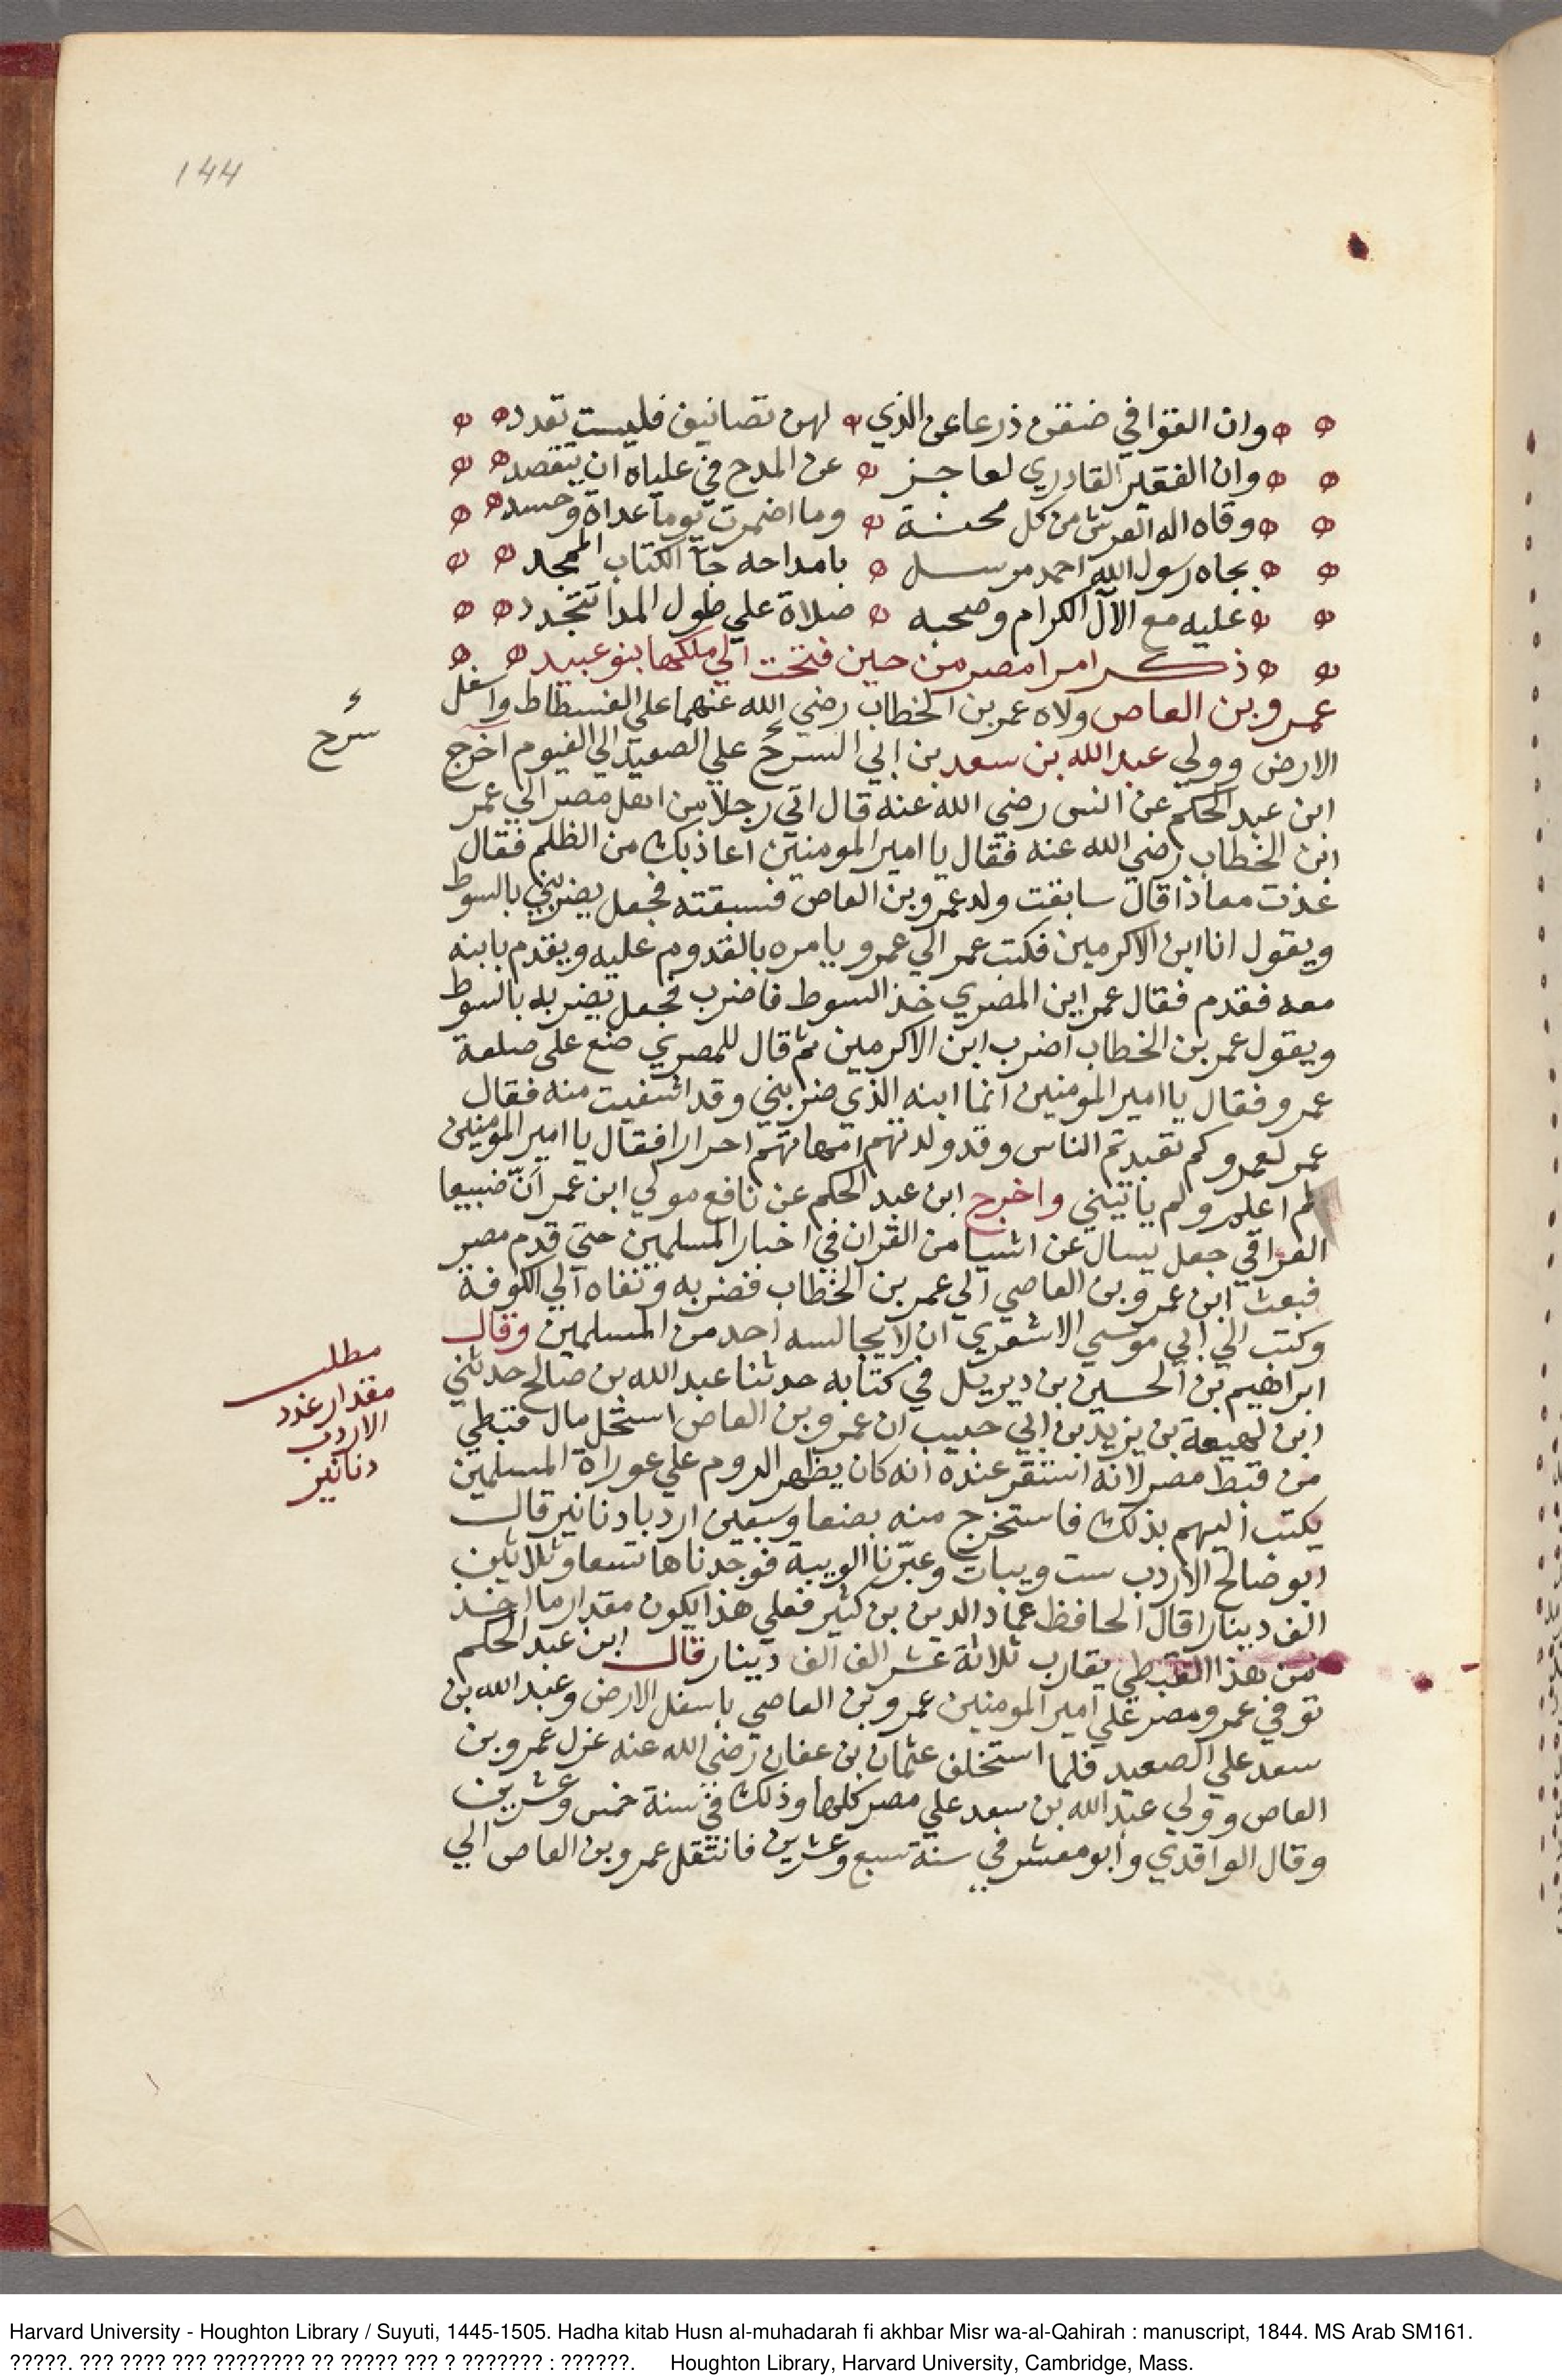 144
وان القوافي ضقن ذرعا عن الذي لهن تصانيف فليست تعدد
وان الفقير القادري لعاجز عن المدح في علياه ان يتقصد
وقاه اله العرش من كل محنة وما اضمرت يوما عداة وحسد
بجاه رسول الله احمد مرسل بامداحه جآ الكتاب الممجد
عليه مع الآل الكرام وصحبه صلاة علي طول المدا تتجدد
ذكر امرا مصر من حين فتحت الي ملكها بنو عبيد
عمرو بن العاص ولاه عمر بن الخطاب رضي الله عنهما علي الفسطاط واسفل
الارض وولي عبد الله بن سعد بن ابي السرح علي الصعيد الي الفيوم اخرج
سرح
ابن عبد الحكم عن انس رضي الله عنه قال اتي رجلا من اهل مصر الي عمر
ابن الخطاب رضي الله عنه فقال يا امير المومنين اعاذبك من الظلم فقال
عذت معاذا قال سابقت ولد عمرو بن العاص فسبقته فجعل يضربني بالسوط
ويقول انا ابن الاكرمين فكتب عمر الي عمرو يامره بالقدوم عليه ويقدم بابنه
معه فقدم فقال عمر اين المصري خذ السوط فاضرب فجعل يضربه بالسوط
ويقول عمر بن الخطاب اضرب ابن الاكرمين ثم قال للمصري ضع على صلعة
عمرو فقال يا امير المومنين انما ابنه الذي ضربني وقد اشفيت منه فقال
عمر لعمرو كم تعبدتم الناس وقد ولدتهم امهاتهم احرارا فقال يا امير المومنين
لم اعلم ولم ياتيني واخرج ابن عبد الحكم عن نافع مولي ابن عمر انّ ضبيعا
العراقي جعل يسال عن اشيا من القران في اخبار المسلمين حتي قدم مصر
فبعث ابن عمرو بن العاصي الي عمر بن الخطاب فضربه ونفاه الي الكوفة
وكتب الي ابي موسي الاشعري ان لا يجالسه احد من المسلمين وقال
ابراهيم بن الحسين بن ديريل في كتابه حدثنا عبد الله بن صالح حدثني
ابن لهيعة بن يزيد بن ابي حبيب ان عمرو بن العاص استحل مال قبطي
من قبط مصر لانه استقر عنده انه كان يظهر الروم علي عوراة المسلمين
يكتب اليهم بذلك فاستخرج منه بضعا وسبعين اردبا دنانير قال
مطلب
مقدار عدد
الاردب
دنانير
ابو صالح الاردب ست ويبات وعبّرنا الويبة فوجدناها تسعا وثلاثين
الف دينارا قال الحافظ عماد الدين بن كثير فعلي هذا يكون مقدار ما اخذ
من هذا القبطي يقارب ثلاثة عشر الف الف دينار قال ابن عبد الحكم
توفي عمر ومصر علي امير المومنين عمرو بن العاصي باسفل الارض وعبد الله بن
سعد علي الصعيد فلما استخلف عثمان بن عفان رضي الله عنه عزل عمرو بن
العاص وولي عبد الله بن سعد علي مصر كلها وذلك في سنة خمس وعشرين
وقال الواقدي وأبو معشر في سنة سبع وعشرين فانتقل عمرو بن العاص الي
Harvard University - Houghton Library / Suyuti, 1445-1505. Hadha kitab Husn al-muhadarah fi akhbar Misr wa-al-Qahirah : manuscript, 1844. MS Arab SM161.
?????. ??? ???? ??? ???????? ?? ????? ??? ? ??????? : ??????. Houghton Library, Harvard University, Cambridge, Mass.